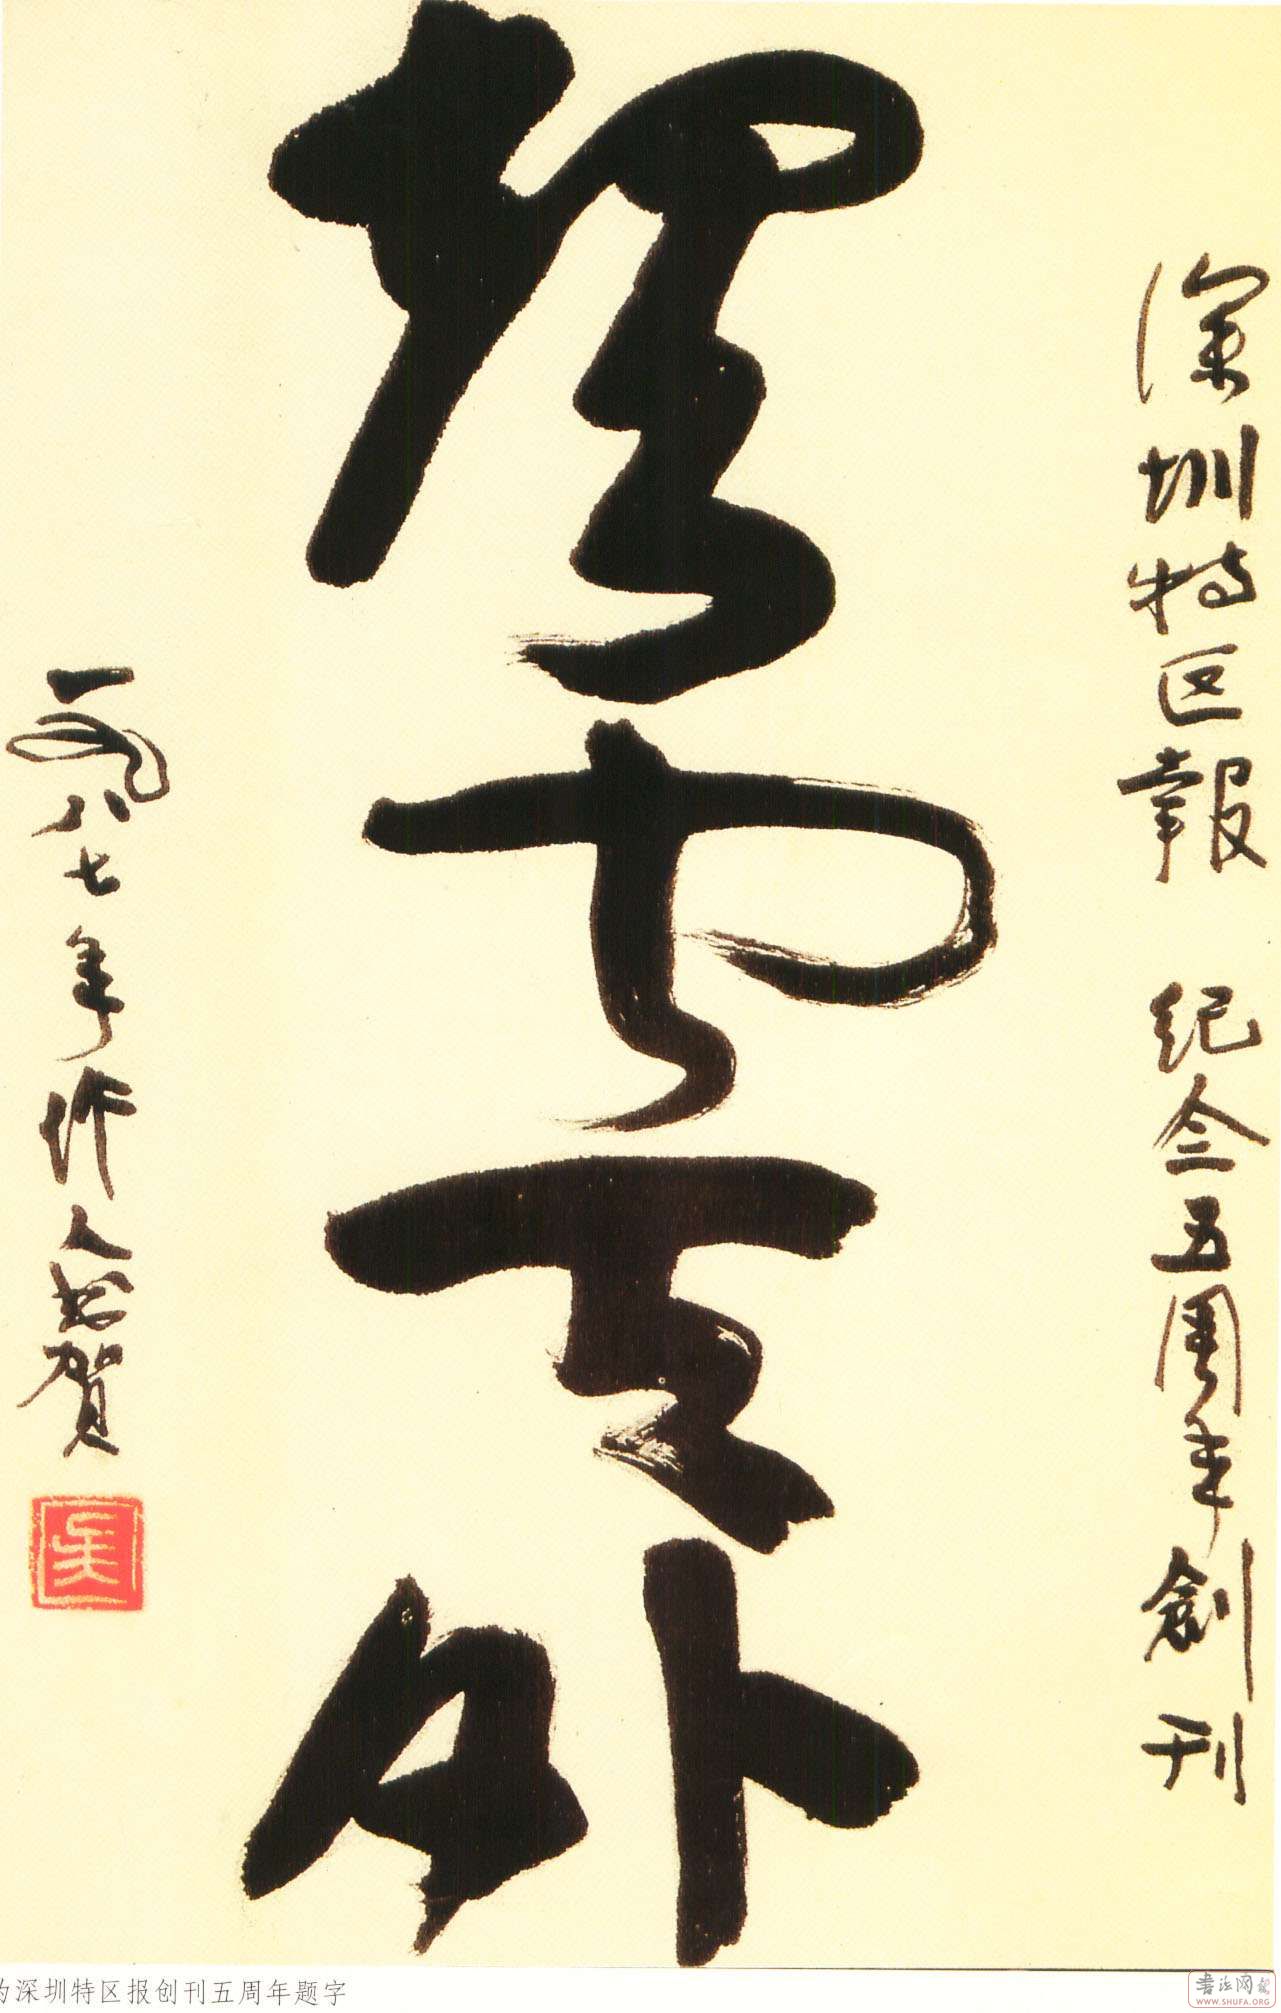 深圳特区報 紀念五周年創刊
外
一九八七年作人书贺
吴
深圳特区报创刊五周年题字
书法网
WWW.SHUFA.ORG